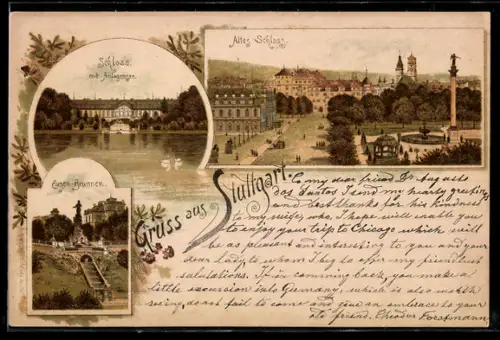 Schloss
mit Anlagensee.
Altes Schloss.
Eugen-Brunnen.
Gruss aus Stuttgart.
To my dear friend Dr. Augusto
dos Santos I send my hearty greetings
and best thanks for his kindness
to my wife, who, I hope will enable you
to enjoy your trip to Chicago which will
be as pleasant and interesting to you and your
dear lady to whom They to offer my friendliest
salutations. If in coming back, you make a
little excursion into Germany, which is also worth
seeing, do not fail to come and give an embrace to your
old friend. Theodor Forstmann